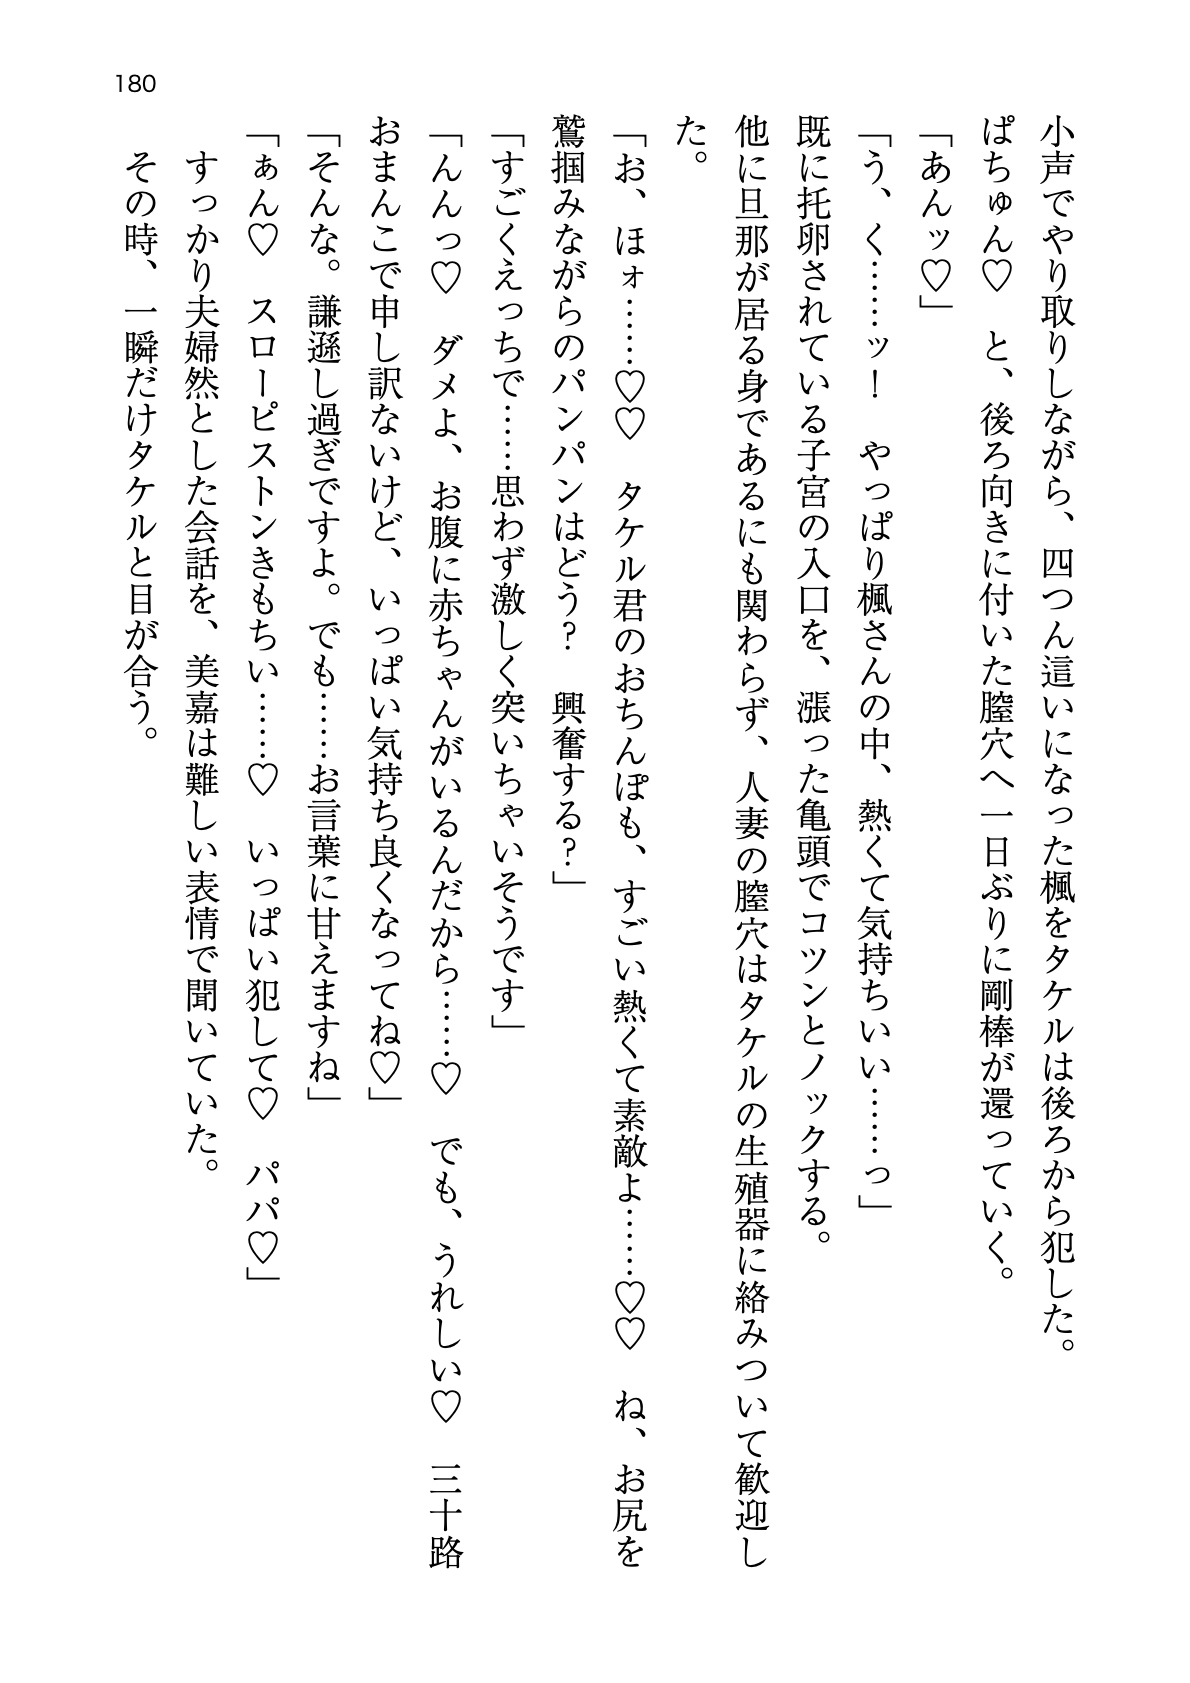 180
小声でやり取りしながら、四つん這いになった楓をタケルは後ろから犯した。
ぱちゅん♡　と、後ろ向きに付いた膣穴へ一日ぶりに剛棒が還っていく。
「あんッ♡」
「う、く……ッ！　やっぱり楓さんの中、熱くて気持ちいい……っ」
既に托卵されている子宮の入口を、漲った亀頭でコツンとノックする。
他に旦那が居る身であるにも関わらず、人妻の膣穴はタケルの生殖器に絡みついて歓迎し
た。
「お、ほォ……♡♡　タケル君のおちんぽも、すごい熱くて素敵よ……♡♡　ね、お尻を
鷲掴みながらのパンパンはどう？　興奮する？」
「すごくえっちで……思わず激しく突いちゃいそうです」
「んんっ♡　ダメよ、お腹に赤ちゃんがいるんだから……♡　でも、うれしい♡　三十路
おまんこで申し訳ないけど、いっぱい気持ち良くなってね♡」
「そんな。謙遜し過ぎですよ。でも……お言葉に甘えますね」
「ぁん♡　スローピストンきもちい……♡　いっぱい犯して♡　パパ♡」
すっかり夫婦然とした会話を、美嘉は難しい表情で聞いていた。
その時、一瞬だけタケルと目が合う。